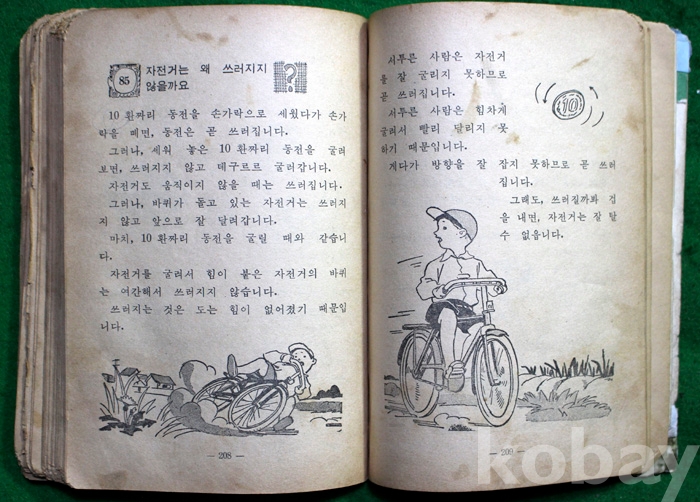 85
자전거는 왜 쓰러지지
않을까요
?
10 환짜리 동전을 손가락으로 세웠다가 손가
락을 떼면, 동전은 곧 쓰러집니다.
그러나, 세워 놓은 10 환짜리 동전을 굴려
보면, 쓰러지지 않고 데구르르 굴러갑니다.
자전거도 움직이지 않을 때는 쓰러집니다.
그러나, 바퀴가 돌고 있는 자전거는 쓰러지
지 않고 앞으로 잘 달려갑니다.
마치, 10 환짜리 동전을 굴릴 때와 같습니
다.
자전거를 굴려서 힘이 붙은 자전거의 바퀴
는 여간해서 쓰러지지 않습니다.
쓰러지는 것은 도는 힘이 없어졌기 때문입
니다.
— 208 —
서투른 사람은 자전거
를 잘 굴리지 못하므로
곧 쓰러집니다.
서투른 사람은 힘차게
굴려서 빨리 달리지 못
하기 때문입니다.
게다가 방향을 잘 잡지 못하므로 곧 쓰러
집니다.
그래도, 쓰러질까봐 겁
을 내면, 자전거는 잘 탈
수 없읍니다.
10
— 209 —
kobay